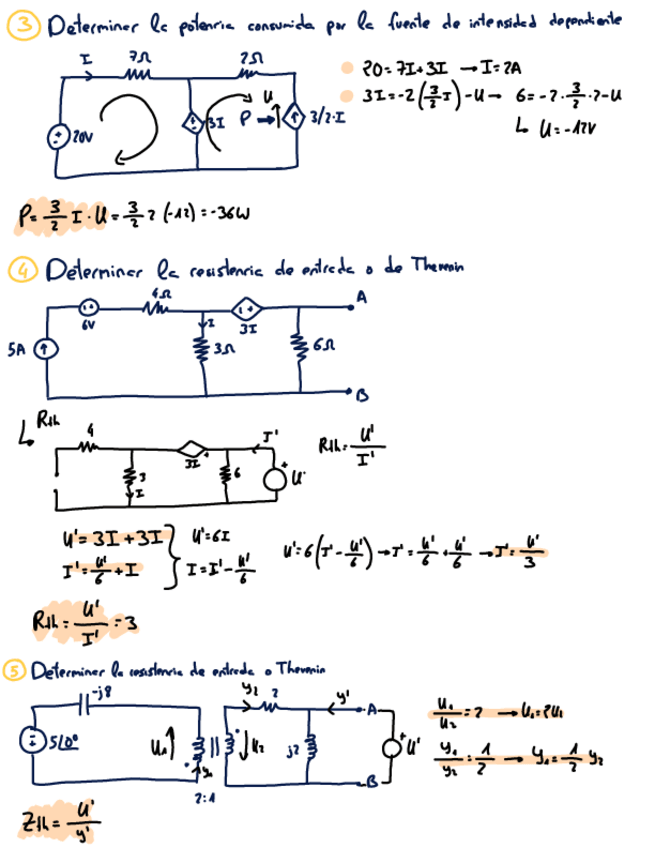 3 Determiner la potencia consumida por la fuente de intensidad dependiente
I 7Ω 2Ω
20V 3I P → U 3/2·I
20=7I+3I → I=2A
3I=-2(3/2 I)-U → 6=-2·3/2·2-U
↳ U=-12V
P= 3/2 I·U = 3/2 2 (-12) = -36W
4 Determiner la resistencia de entrada o de Thevenin
5A 6V 4Ω I 3Ω 3I 6Ω A B
↳ Rth
4 3 I 3I 6 I' U'
Rth= U'/I'
U'=3I+3I U'=6I
I'=U'/6+I I=I'-U'/6
U'=6(I'-U'/6) → I'=U'/6+U'/6 → I'=U'/3
Rth= U'/I' =3
5 Determiner la resistencia de entrada o Thevenin
-j8 y2 2 y' A
5∠0° U1 y1 U2 j2 U' B
2:1
U1/U2=2 → U1=2U2
y1/y2=1/2 → y1=1/2 y2
Zth= U'/y'